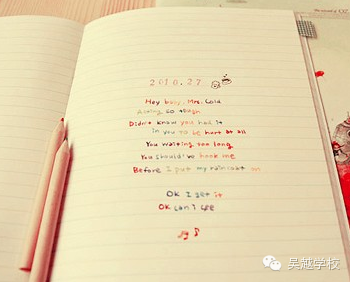 2010.27
Hey baby, Mrs. Cold
Acting so tough
Didn't know you had it
in you to be hurt at all
You waiting too long
You should've hook me
Before I put my raincoat on
OK I get it
OK can I see
吴越学校